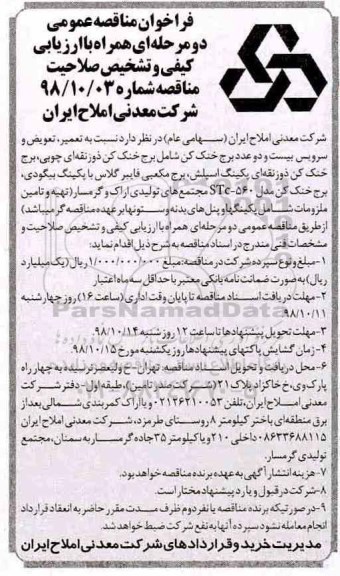 فراخوان مناقصه عمومی
دو مرحله‌ای همراه با ارزیابی
کیفی و تشخیص صلاحیت
مناقصه شماره ۹۸/۱۰/۰۳
شرکت معدنی املاح ایران
شرکت معدنی املاح ایران (سهامی عام) در نظر دارد نسبت به تعمیر، تعویض و
سرویس بیست و دو عدد برج خنک کن شامل برج خنک کن ذوزنقه‌ای چوبی، برج
خنک کن ذوزنقه‌ای پکینگ اسپلش، برج مکعبی فایبر گلاس با پکینگ بیگودی،
برج خنک کن مدل STc-۵۶۰ مجتمع‌های تولیدی اراک و گرمسار (تهیه و تامین
ملزومات شامل پکینگها و پنل های بدنه و ستونها بر عهده مناقصه گر میباشد)
از طریق مناقصه عمومی دو مرحله‌ای همراه با ارزیابی کیفی و تشخیص صلاحیت و
مشخصات فنی مندرج در اسناد مناقصه به شرح ذیل اقدام نماید:
۱- مبلغ و نوع سپرده شرکت در مناقصه: مبلغ ۱/۰۰۰/۰۰۰/۰۰۰ ریال (یک میلیارد
ریال) به صورت ضمانت نامه بانکی معتبر با حداقل سه ماه اعتبار
۲- مهلت دریافت اسناد مناقصه تا پایان وقت اداری (ساعت ۱۶) روز چهارشنبه
۹۸/۱۰/۱۱
۳- مهلت تحویل پیشنهادها تا ساعت ۱۲ روز شنبه ۹۸/۱۰/۱۴
۴- زمان گشایش پاکتهای پیشنهادها روز یکشنبه مورخ ۹۸/۱۰/۱۵
۶- محل دریافت و تحویل اسناد مناقصه: تهران خ ولیعصر نرسیده به چهار راه
پارک وی، خ خاکزاد پلاک ۲۱ (شرکت صدر تامین)، طبقه اول- دفتر شرکت
معدنی املاح ایران، تلفن ۰۲۱۲۶۲۱۰۰۵۳ و یا اراک کمربندی شمالی بعد از
برق منطقه‌ای باختر کیلومتر ۸ روستای طرمزد، شرکت معدنی املاح ایران
۰۸۶۳۳۶۸۸۱۱۵ داخلی ۲۱۰ و یا کیلومتر ۳۵ جاده گرمسار به سمنان، مجتمع
تولیدی گرمسار.
۷- هزینه انتشار آگهی به عهده برنده مناقصه خواهد بود.
۸- شرکت در قبول و یا رد پیشنهاد مختار است.
۹- در صورتیکه برنده مناقصه یا نفر دوم ظرف مدت مقرر حاضر به انعقاد قرارداد
انجام معامله نشود سپرده آنها به نفع شرکت ضبط خواهد شد.
مدیریت خرید و قراردادهای شرکت معدنی املاح ایران
ParsNamadData